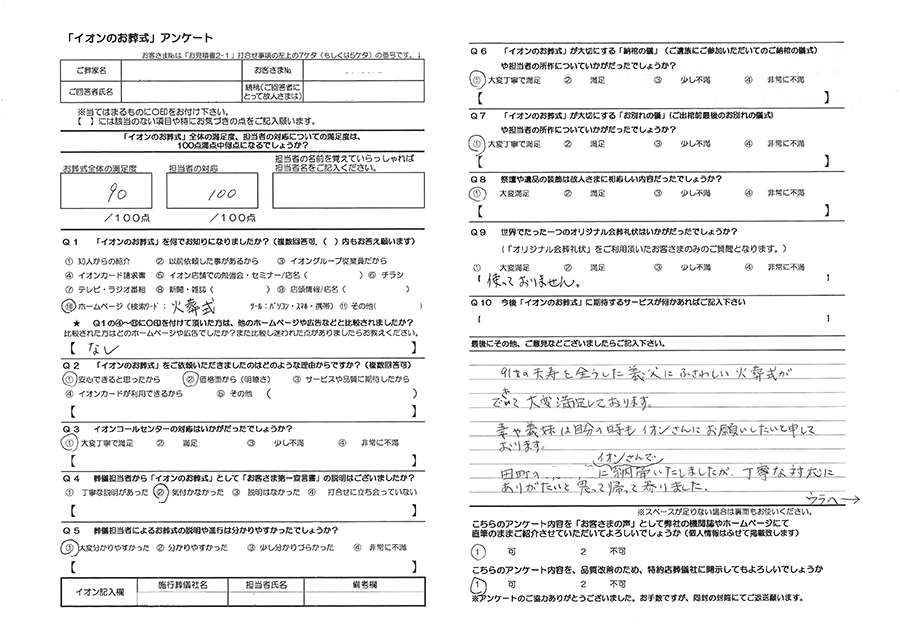 「イオンのお葬式」アンケート
お客さま№は「お見積書2-1」打合せ事項の左上の7ケタ(もしくは5ケタ)の番号です。↓
ご葬家名 お客さま№
ご回答者氏名 続柄(ご回答者にとって故人さまは)
※当てはまるものに○印をお付け下さい。
【 】には該当のない項目や特にお気づきの点をご記入願います。
「イオンのお葬式」全体の満足度、担当者の対応についての満足度は、
100点満点中何点になるでしょうか?
お葬式全体の満足度 担当者の対応 担当者の名前を覚えていらっしゃれば担当者名をご記入ください。
90 100
/100点 /100点
Q1 「イオンのお葬式」を何でお知りになりましたか?(複数回答可,( )内もお答え願います)
① 知人からの紹介 ② 以前依頼した事があるから ③ イオングループ従業員だから
④ イオンカード請求書 ⑤ イオン店舗での勉強会・セミナー/店名( ) ⑥ チラシ
⑦ テレビ・ラジオ番組 ⑧ 新聞・雑誌( ) ⑨ 店頭情報/店名( )
⑩ ホームページ(検索ワード: 火葬式 ツール:パソコン・スマホ・携帯) ⑪ その他( )
★ Q1の④~⑩に○印を付けて頂いた方は、他のホームページや広告などと比較されましたか?
比較された方はどのホームページや広告でしたか?また比較し迷われた点がありましたらお教えください。
【 なし 】
Q2 「イオンのお葬式」をご依頼いただきましたのはどのような理由からですか?(複数回答可)
① 安心できると思ったから ② 価格面から(明瞭さ) ③ サービスや品質に期待したから
④ イオンカードが利用できるから ⑤ その他 ( )
【 】
Q3 イオンコールセンターの対応はいかがだったでしょうか?
① 大変丁寧で満足 ② 満足 ③ 少し不満 ④ 非常に不満
【 】
Q4 葬儀担当者から「イオンのお葬式」として「お客さま第一宣言書」の説明はございましたか?
① 丁寧な説明があった ② 気付かなかった ③ 説明はなかった ④ 打合せに立ち会っていない
【 】
Q5 葬儀担当者によるお葬式の説明や進行は分かりやすかったでしょうか?
① 大変分かりやすかった ② 分かりやすかった ③ 少し分かりづらかった ④ 非常に不満
【 】
イオン記入欄 施行葬儀社名 担当者氏名 備考欄
Q6 「イオンのお葬式」が大切にする「納棺の儀」(ご遺族にご参加いただいてのご納棺の儀式)
や担当者の所作についていかがだったでしょうか?
① 大変丁寧で満足 ② 満足 ③ 少し不満 ④ 非常に不満
【 】
Q7 「イオンのお葬式」が大切にする「お別れの儀」(ご出棺前最後のお別れの儀式)
や担当者の所作についていかがだったでしょうか?
① 大変丁寧で満足 ② 満足 ③ 少し不満 ④ 非常に不満
【 】
Q8 祭壇や遺品の装飾は故人さまに相応しい内容だったでしょうか?
① 大変満足 ② 満足 ③ 少し不満 ④ 非常に不満
【 】
Q9 世界でたった一つのオリジナル会葬礼状はいかがだったでしょうか?
(「オリジナル会葬礼状」をご利用頂いたお客さまのみのご質問となります。)
① 大変満足 ② 満足 ③ 少し不満 ④ 非常に不満
【 使っておりません。 】
Q10 今後「イオンのお葬式」に期待するサービスが何かあればご記入下さい
【 】
最後にその他、ご意見などございましたらご記入下さい。
91才の天寿を全うした義父にふさわしい火葬式が
できて大変満足しております。
妻や義妹は自分の時もイオンさんにお願いしたいと申して
おります。
イオンさんで
田町の に納骨いたしましたが、丁寧な対応に
ありがたいと思って帰って参りました。
ウラへ→
※スペースが足りない場合は裏面もお使いください。
こちらのアンケート内容を「お客さまの声」として弊社の機関誌やホームページにて
直筆のままご紹介させていただいてよろしいでしょうか(個人情報はふせて掲載致します)
1 可 2 不可
こちらのアンケート内容を、品質改善のため、特約店葬儀社に開示してもよろしいでしょうか
1 可 2 不可
※アンケートのご協力ありがとうございました。お手数ですが、同封の封筒にてご返送願います。